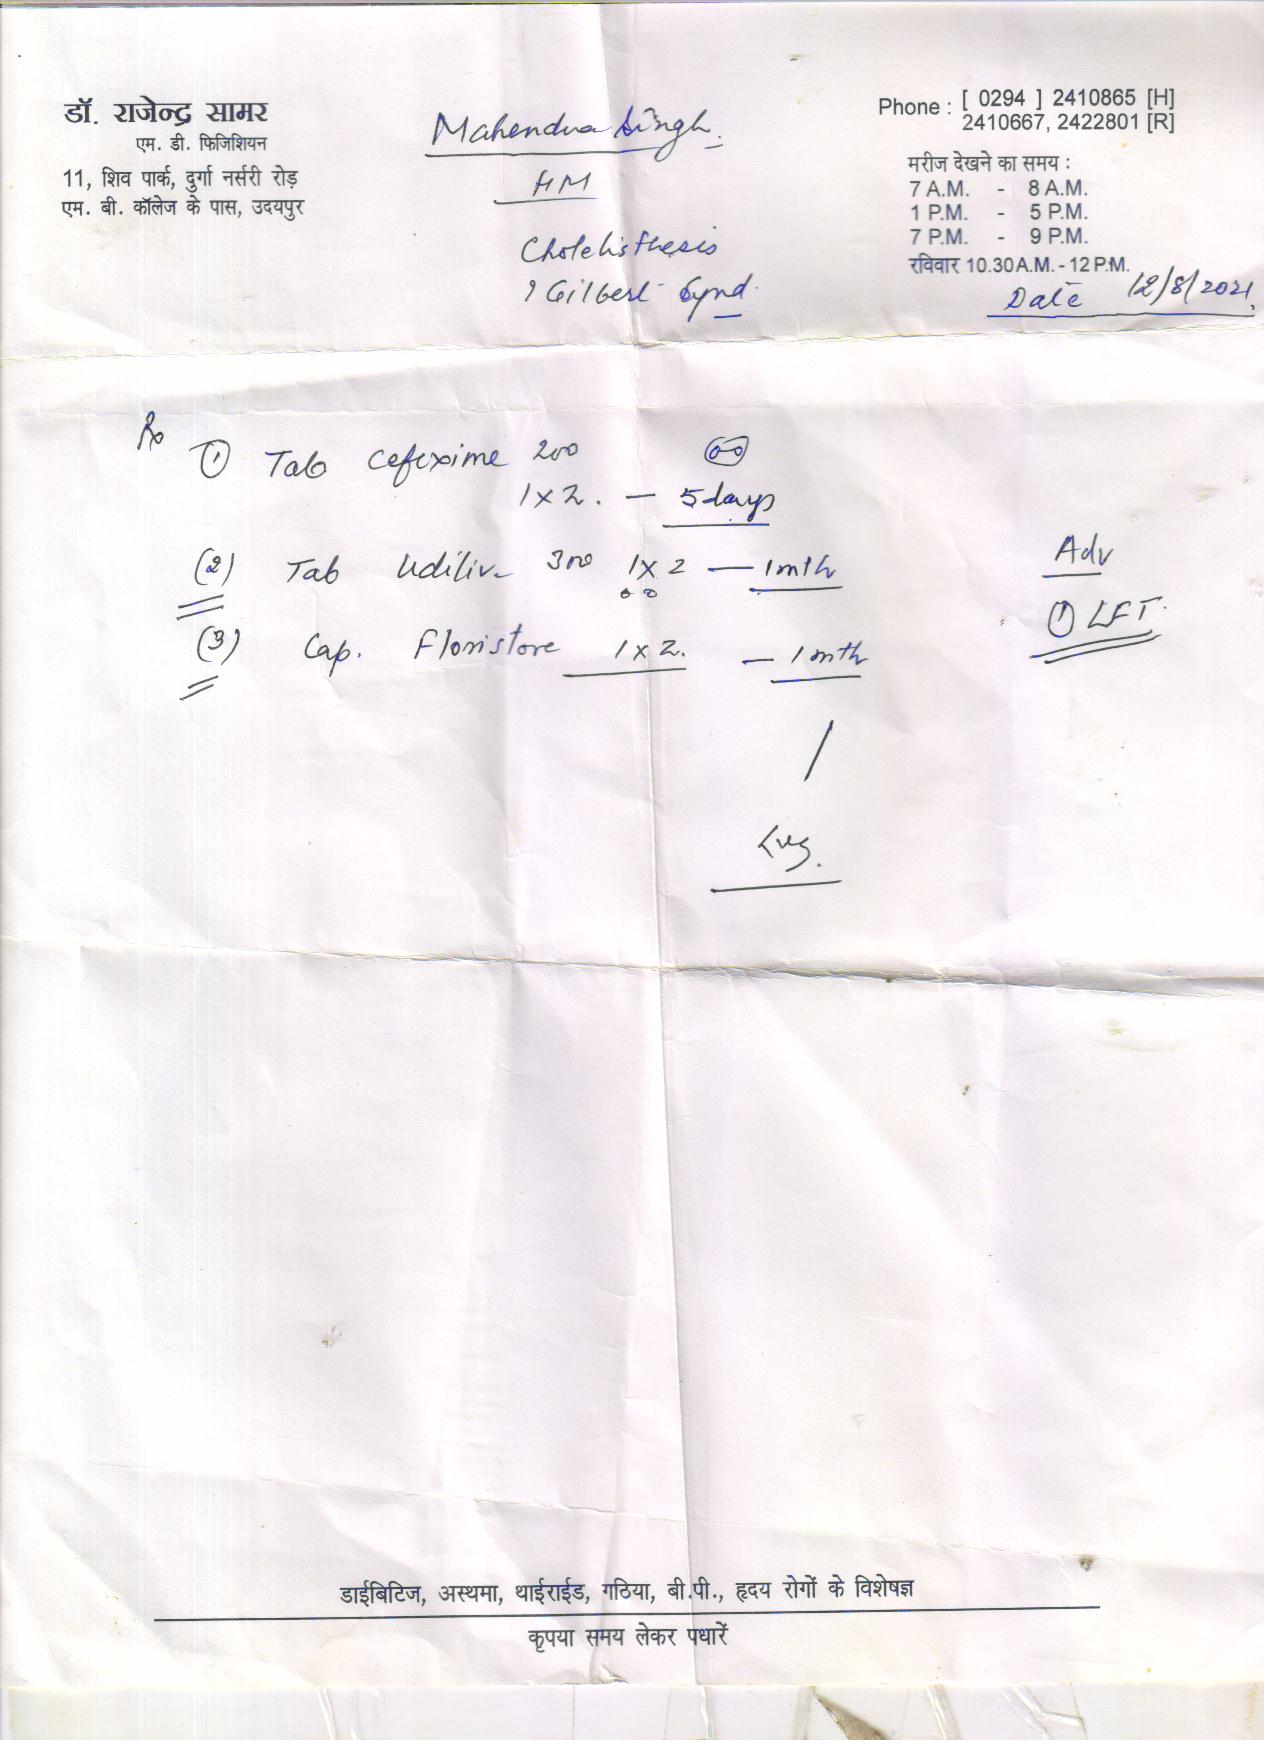 डॉ. राजेन्द्र सामर
एम. डी. फिजिशियन
11, शिव पार्क, दुर्गा नर्सरी रोड़
एम. बी. कॉलेज के पास, उदयपुर
Mahendra Singh.
HM
Cholelisthesis
? Gilbert Synd.
Phone : [ 0294 ] 2410865 [H]
2410667, 2422801 [R]
मरीज देखने का समय :
7 A.M. - 8 A.M.
1 P.M. - 5 P.M.
7 P.M. - 9 P.M.
रविवार 10.30 A.M. - 12 P.M.
Date 12/8/2021
Rx
① Tab cefixime 200
1 x 2. — 5 days
(2) Tab Udiliv 300 1 x 2 — 1 mth
(3) Cap. Floristore 1 x 2. — 1 mth
Adv
① LFT.
डाईबिटिज, अस्थमा, थाईराईड, गठिया, बी.पी., हृदय रोगों के विशेषज्ञ
कृपया समय लेकर पधारें